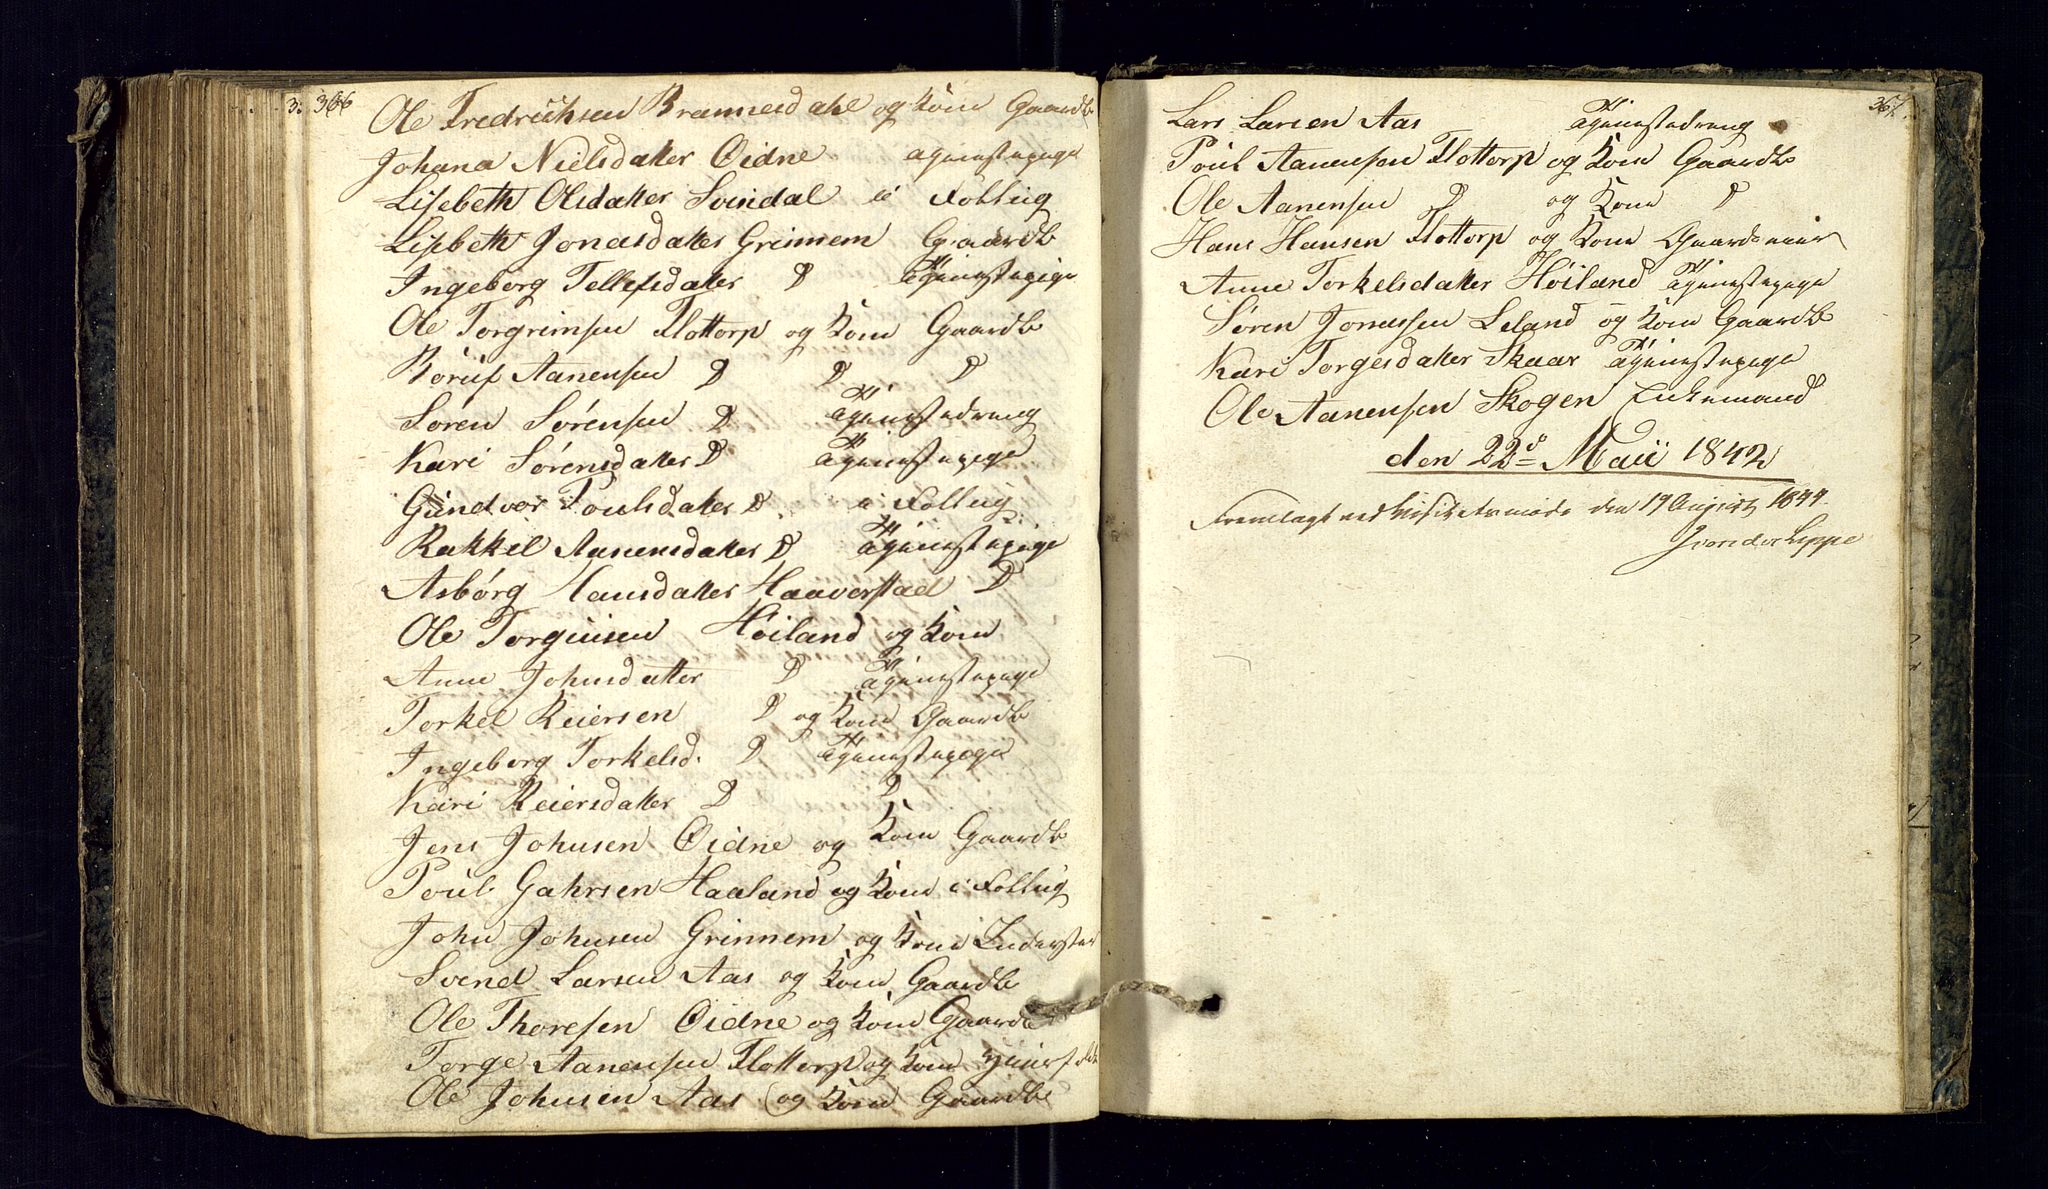 366
Ole Fredrichsen Brannesdahl og Kone Gaardb
Johana Nielsdatter Øidne Tjenestepige
Lisebeth Olsdatter Svindal i Follug
Lisebeth Jonasdatter Grimnem Gaardb
Ingeborg Tellefsdatter D Tjenestepige
Ole Torgrimsen Flottorp og Kone Gaardb
Börüf Aanensen D D D
Sören Sörensen D Tjenestedreng
Kari Sörensdatter D Tjenestepige
Gündvor Poulsdatter D i Follug
Rakkel Aanensdatter D Tjenestepige
Asbórg Hansdatter Haaverstad D
Ole Torgiüsen Höiland og Kone
Anne Johnsdatter D Tjenestepige
Torkel Reiersen D og Kone Gaardb
Ingeborg Torkelsd. D Tjenestepige
Kari Reiersdatter D D
Jens Johnsen Øidne og Kone Gaardb
Poül Gahrsen Haaland og Kone i Follug
John Johnsen Grinnem og Kone Inderster
Svend Larsen Aas og Kone Gaardb
Ole Thoresen Øidne og Kone Gaardb
Torge Aanensen Flottorp og Kone
Ole Johnsen Aas og Kone Gaardb
367.
Lars Larsen Aas Tjenestedreng
Poül Aanensen Flottorp og Kone Gaardb
Ole Aanensen D og Kone D
Hans Hansen Flottorp og Kone Gaardeeier
Anne Torkelsdatter Höiland Tjenestepige
Sören Jonassen Leland og Kone Gaardb
Kari Torgesdatter Skaar Tjenestepige
Ole Aanensen Skogen Enkemand
den 22d Maii 1842
Fremlagt ved Visitatsmøde den 19 August 1844
J von der Lippe